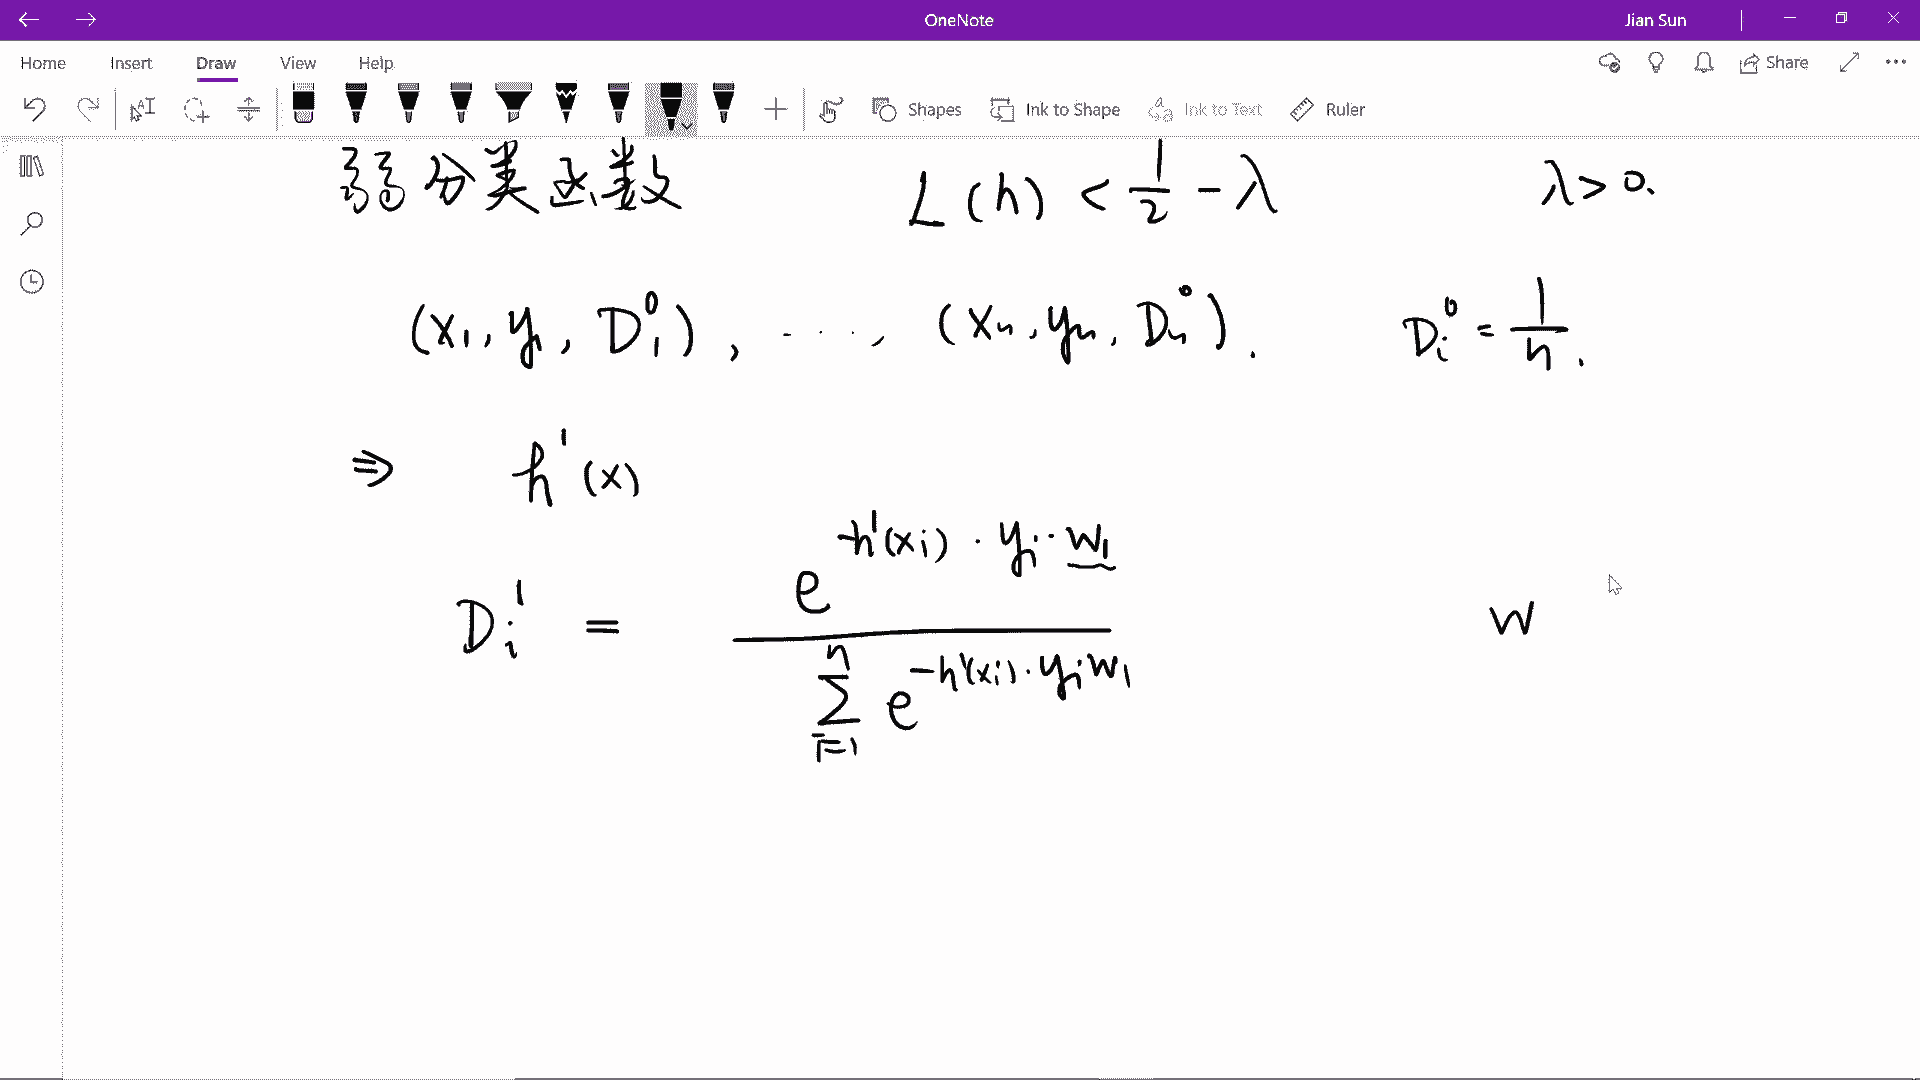 OneNote
Jian Sun
Home Insert Draw View Help
Share
Shapes Ink to Shape Ink to Text Ruler
弱分类函数 L(h) < 1/2 - λ λ > 0.
(x₁, y₁, D₁⁰), ..., (xₙ, yₙ, Dₙ⁰). Dᵢ⁰ = 1/n.
⇒ h¹(x)
Dᵢ¹ = e^(-h¹(xᵢ)·yᵢ·w₁) / ∑ᵢ₌₁ⁿ e^(-h¹(xᵢ)·yᵢw₁) w